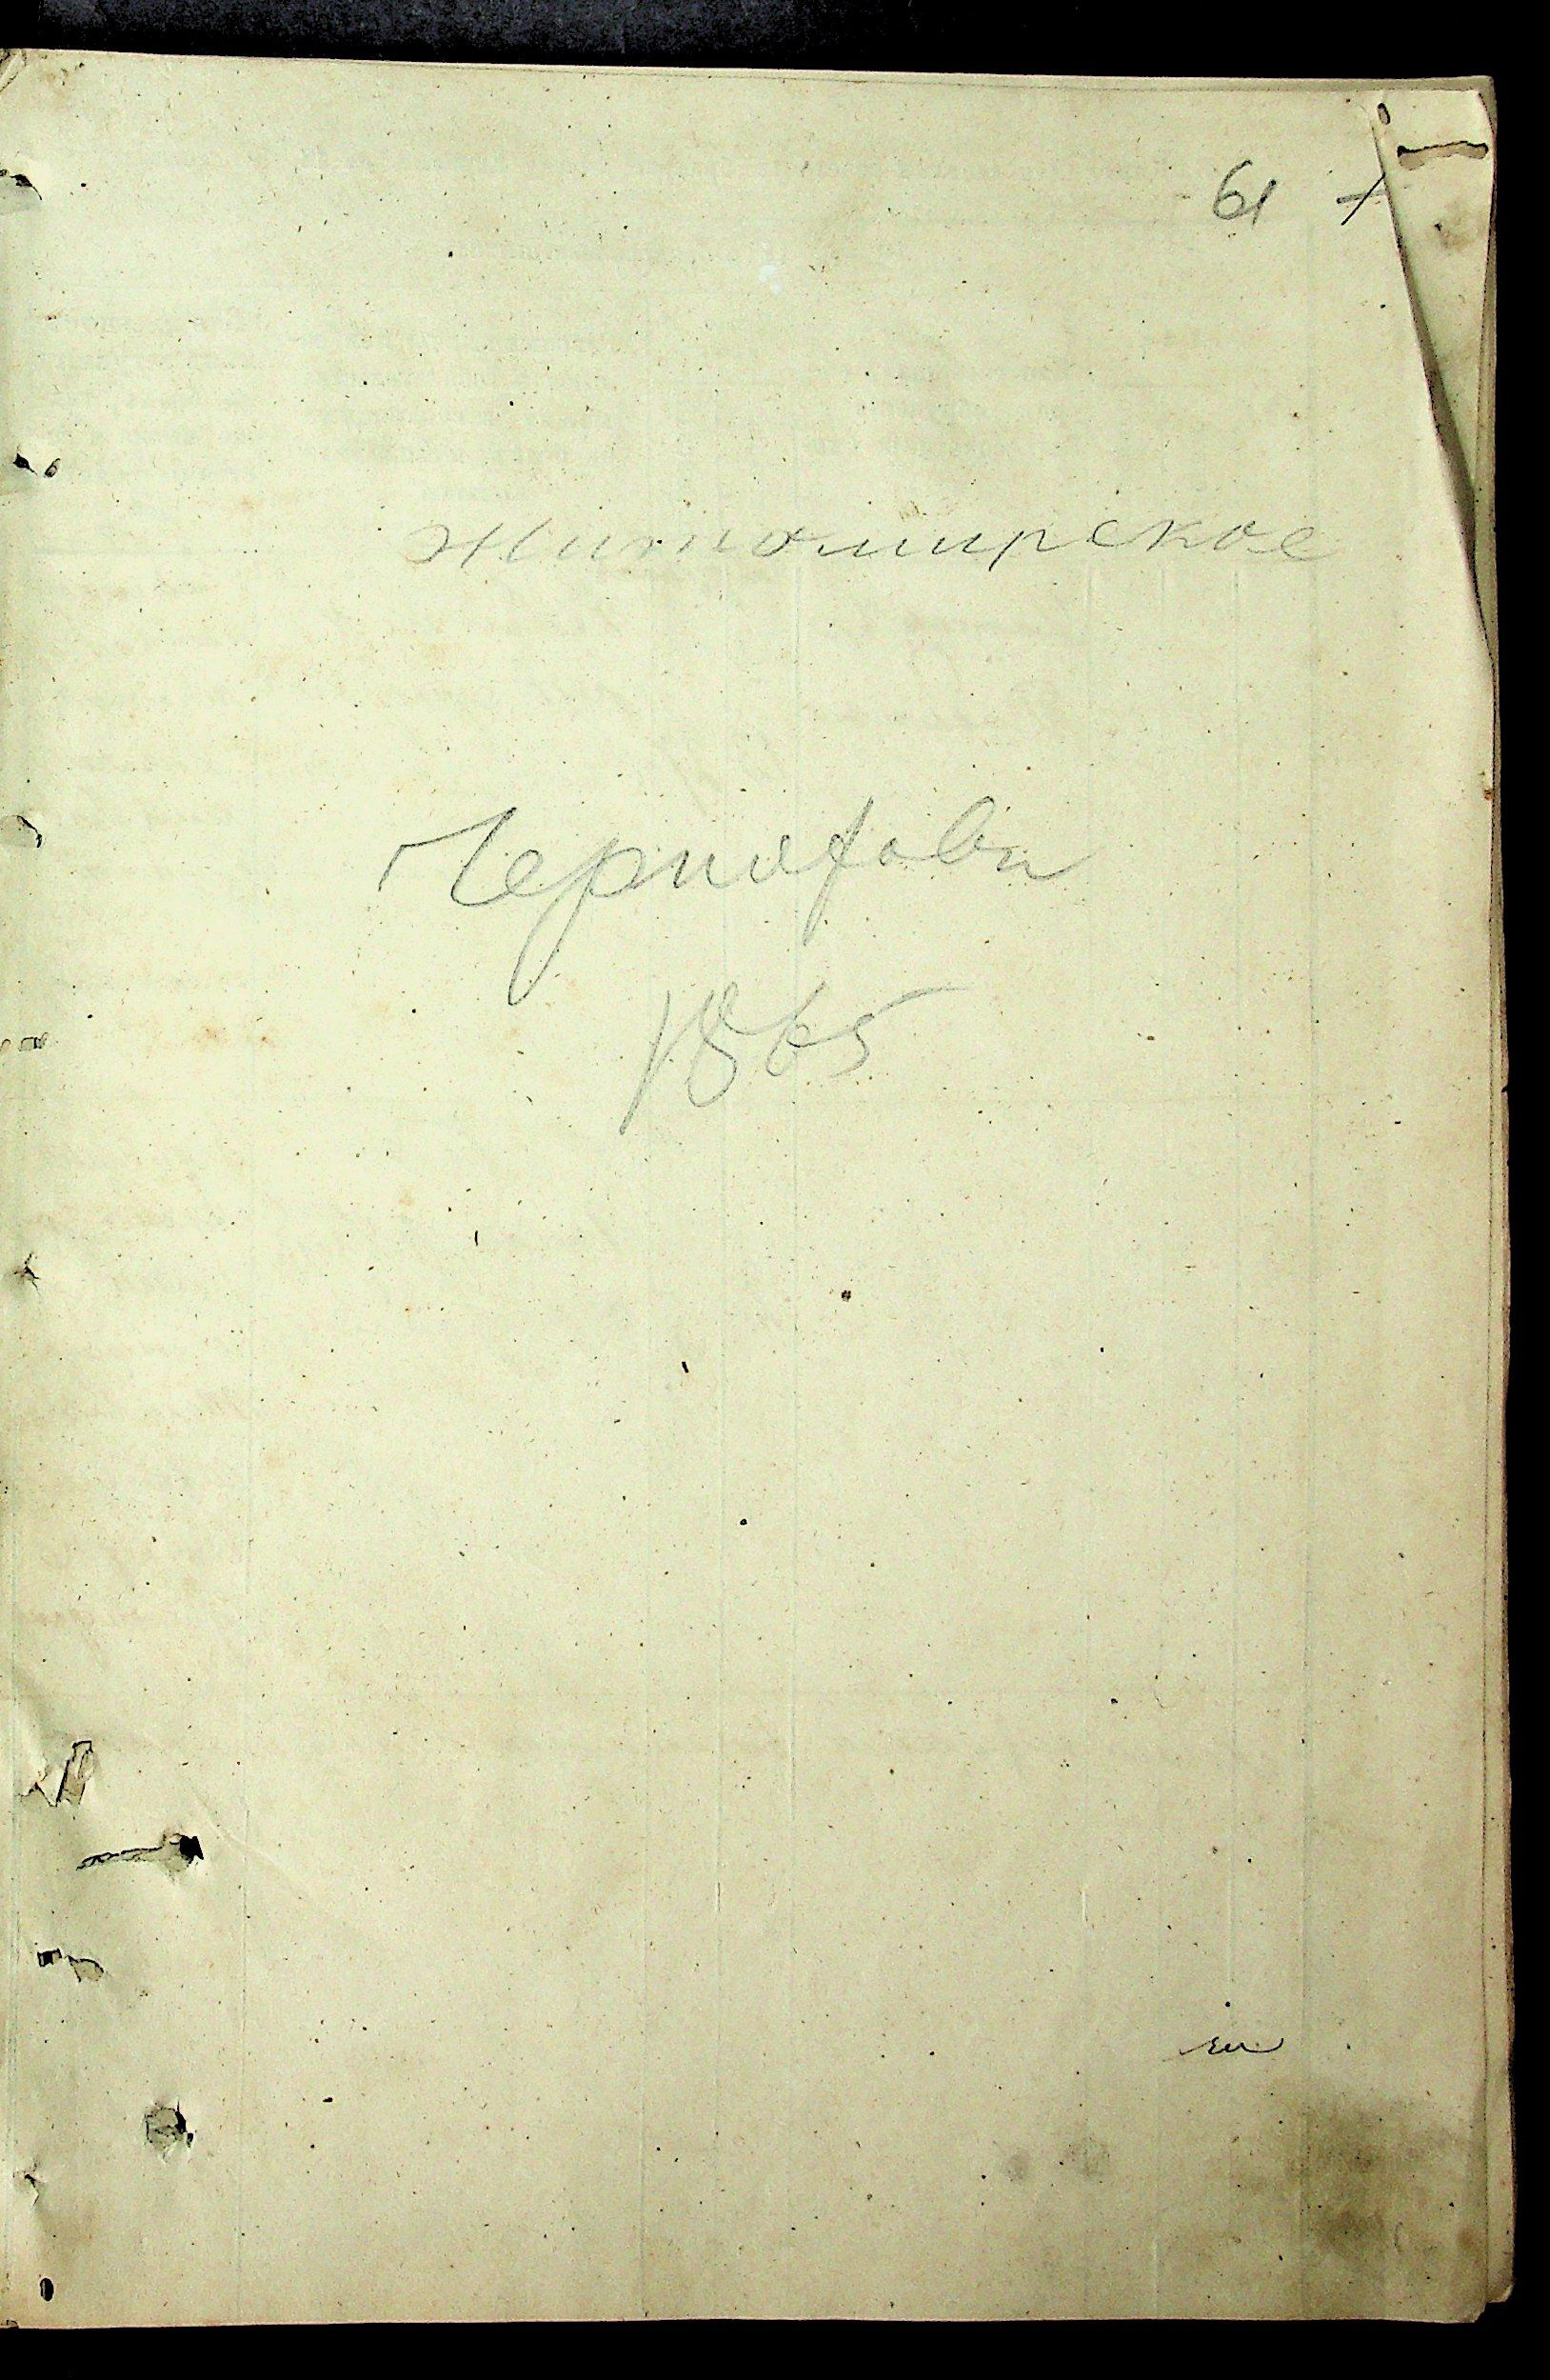 61
Житомирское
Черновова
1865